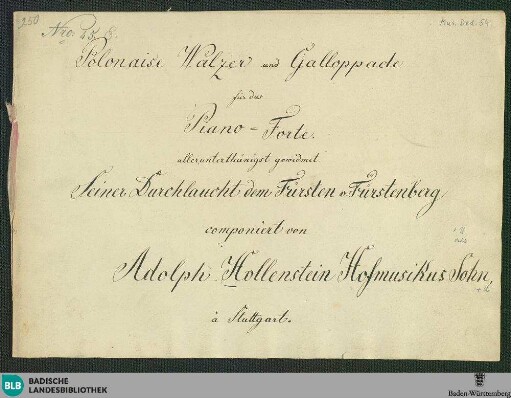 250
Nro. 25,
Mus. Don. 64
Polonaise Walzer und Galloppade
für das
Piano-Forte.
allerunterthänigst gewidmet
Seiner Durchlaucht dem Fürsten v Fürstenberg
componiert von
Adolph Hollenstein Hofmusikus Sohn,
à Stuttgart.
BLB
BADISCHE
LANDESBIBLIOTHEK
Baden-Württemberg